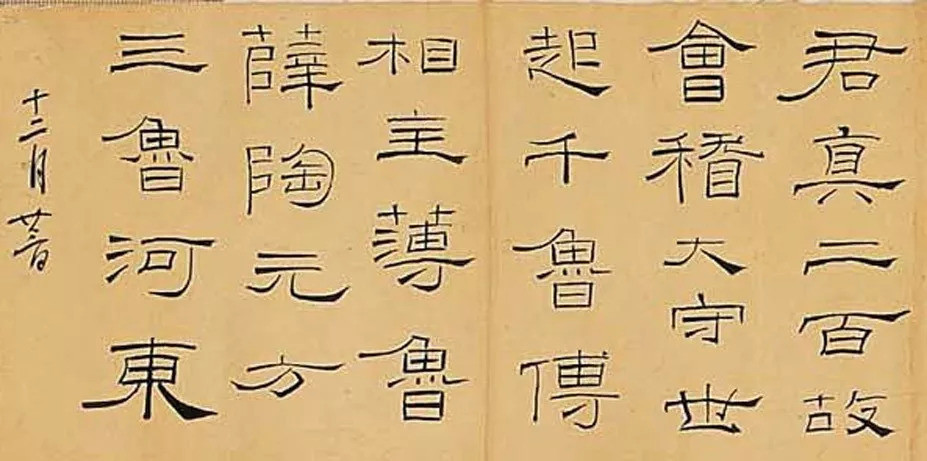 君真二百故
會稽大守世
起千魯傅
相主薄魯
薛陶元方
三魯河東
十二月廿日